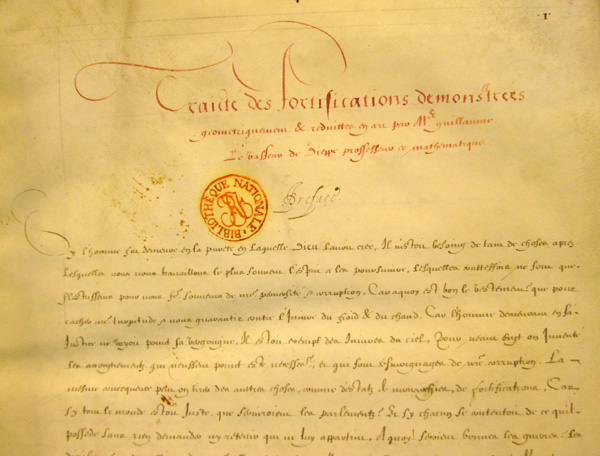 1
Traicte des fortifications demonstrees
geometriquement & reduittes en art par Mr Guillaume
Le Vasseur de Dieppe professeur es mathematique
BIBLIOTHÈQUE NATIONALE
Preface
Sy l'homme fut demeuré en la pureté en laquelle Dieu l'avoit créé, Il n'estoit besoing de tant de choses apres
Lesquelles nous nous travaillons le plus souvent l'esprit a les poursuivre, Lesquelles touttefois ne sont que
pour nous souvenir de nre & corruption. Car a quoy est bon le vestement que pour
cacher nre turpitude & nous guarantir contre l'Iniure du froid & du chaud. Car l'homme demeurant en sa
Justice ne voyoit point sa vergongne. Il estoit exempt des Iniures du ciel, on Invente
les qui point esté necess. et qui sont tesmoignages de nre corruption. La
mesme consequence peut on tirer des autres choses, comme d'estatz & monarchies, de fortifications, Car
sy tout le monde estoit Juste, que serviroient les parlements? Et sy chacun se contentoit de ce qu'il
possede sans rien demander ny retenir qui ne luy appartint, A quoy seroient bonnes les guerres. Les